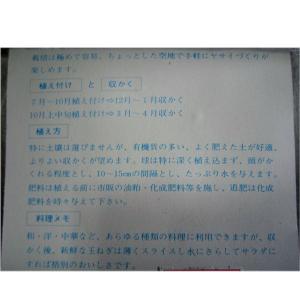 栽培は極めて容易、ちょっとした空地で手軽にヤサイづくりが
楽しめます。
植え付け と 収かく
7月～10月植え付け⇨12月～1月収かく
10月上中旬植え付け⇨3月～4月収かく
植え方
特に土壌は選びませんが、有機質の多い、よく肥えた土が好適、
よりよい収かくが望めます。球は特に深く植え込まず、頭がか
くれる程度とし、10～15cmの間隔とし、たっぷり水を与えます。
肥料は植える前に市販の油粕・化成肥料等を施し、追肥は化成
肥料を時々与えて下さい。
料理メモ
和・洋・中華など、あらゆる種類の料理に利用できますが、収
かく後、新鮮な玉ねぎは薄くスライスし水にさらしてサラダに
すれば格別のおいしさです。